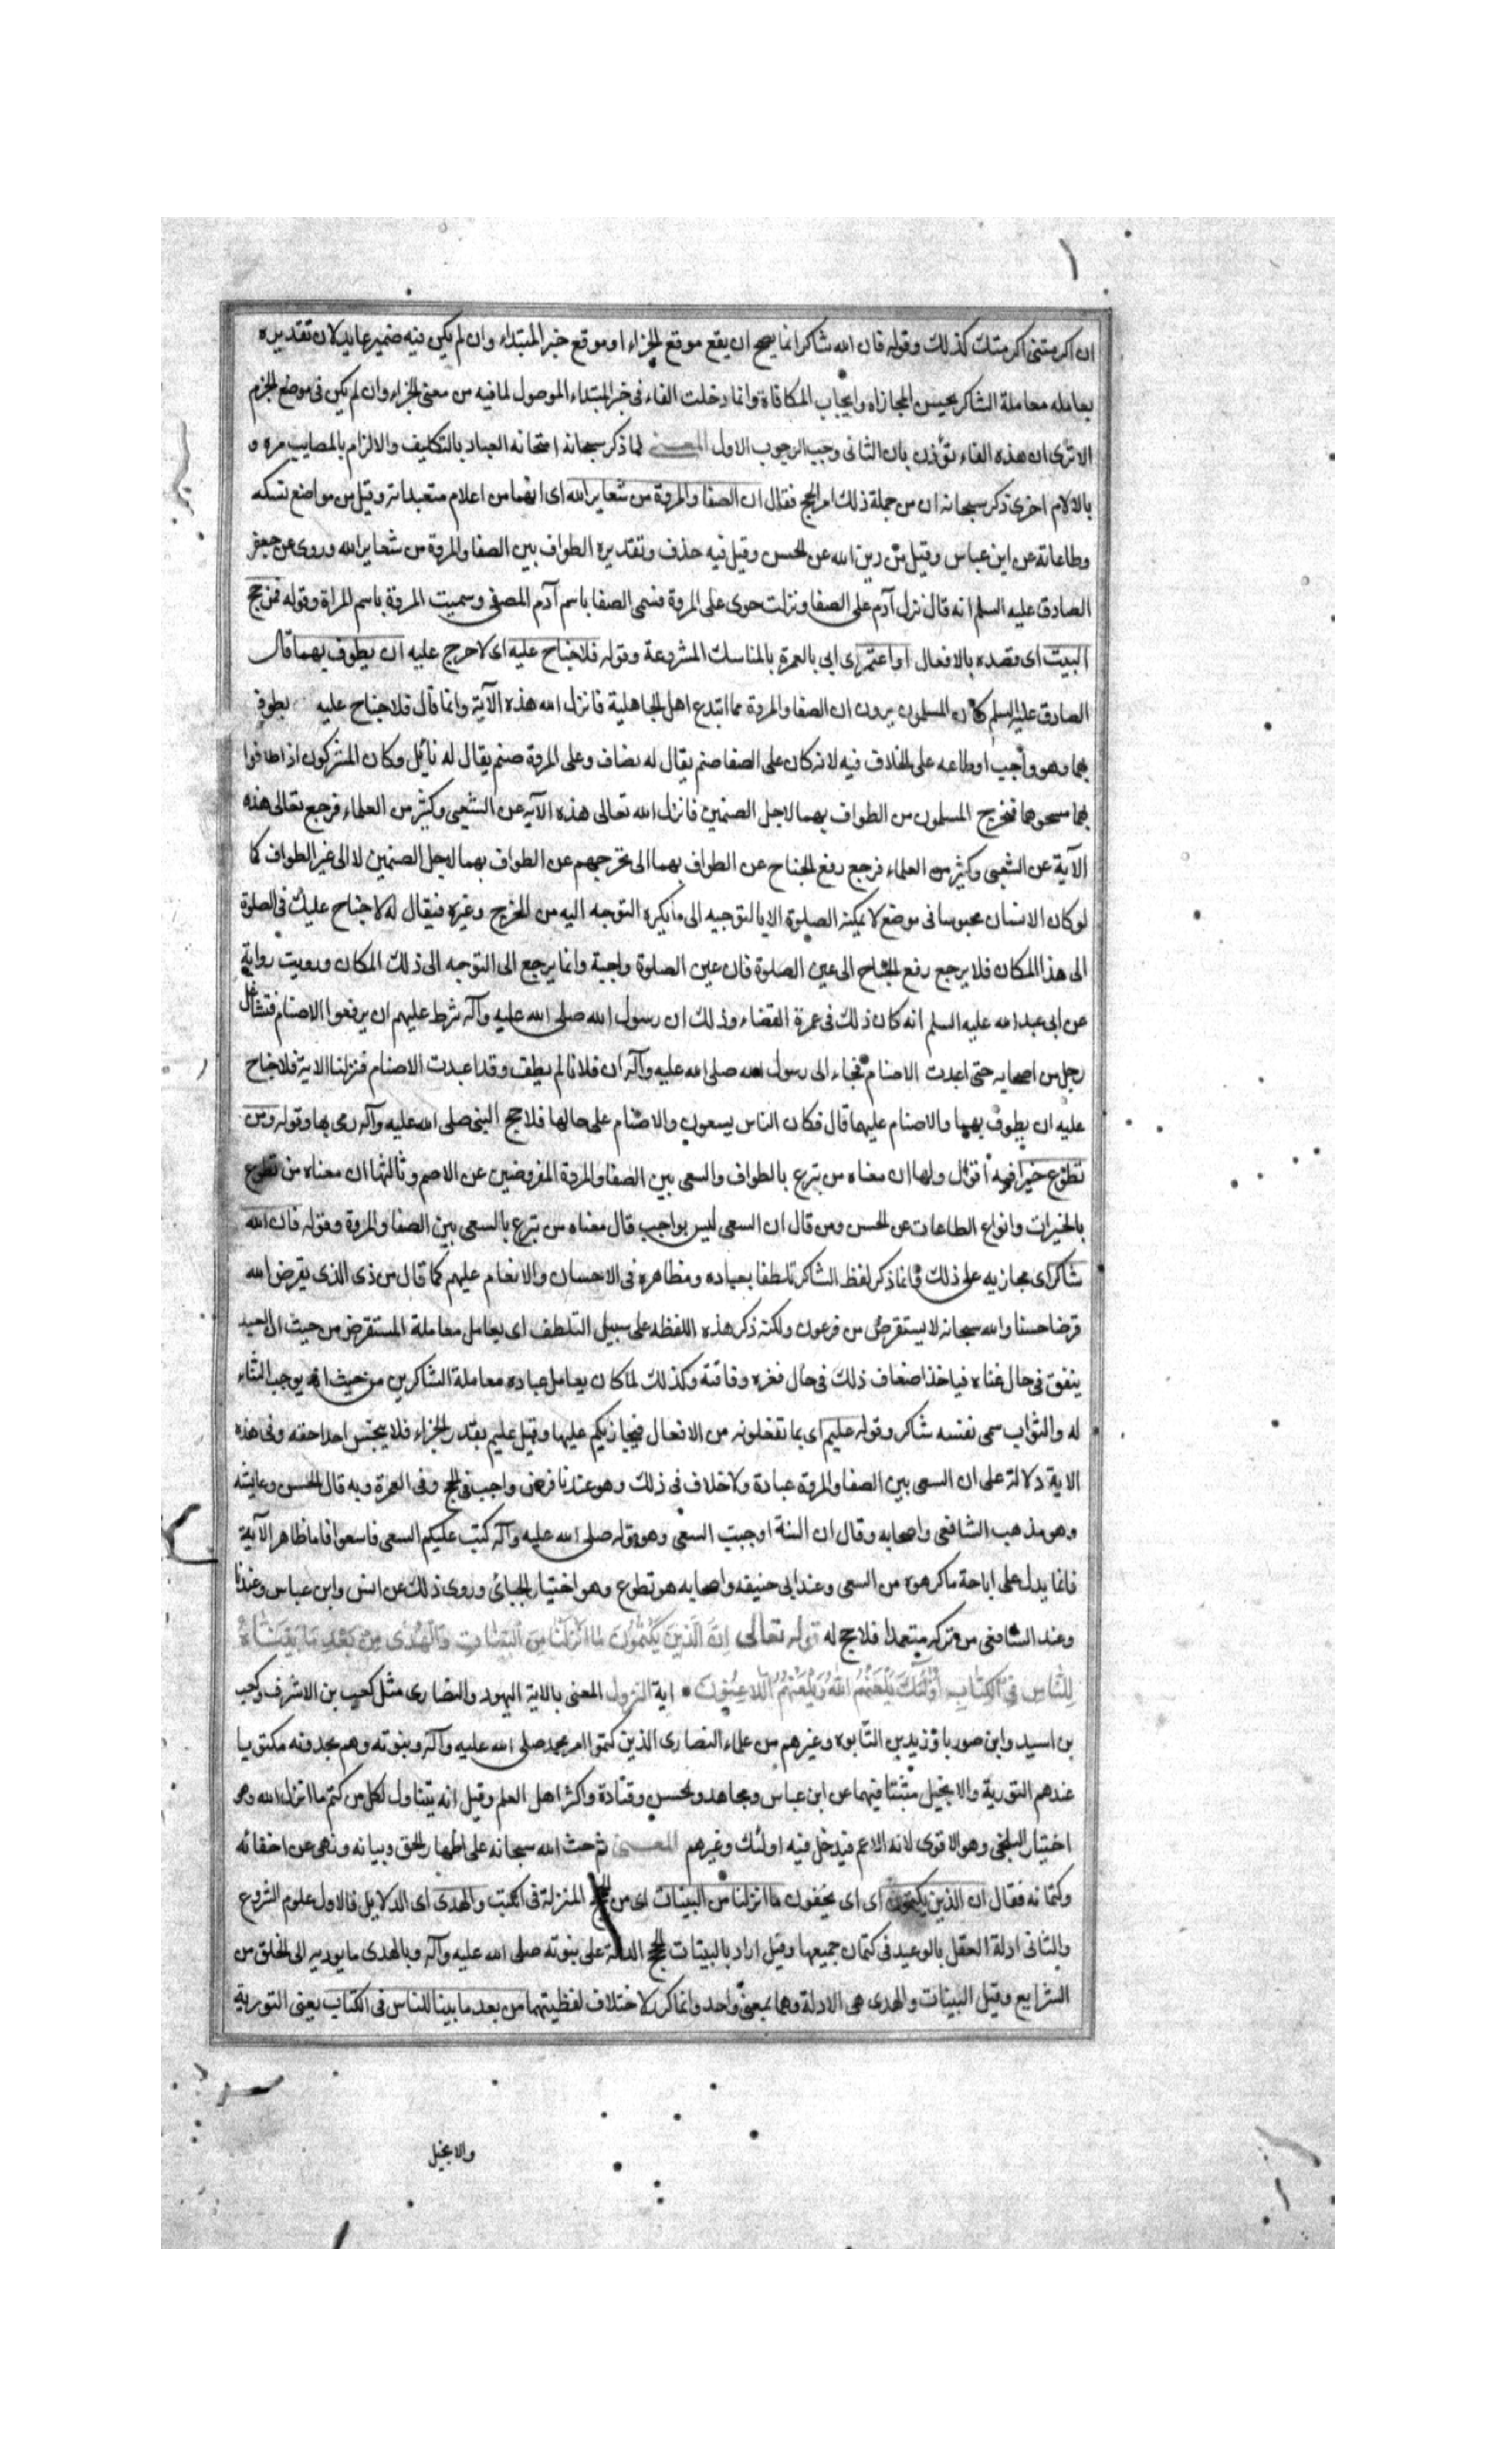 ان اكرمتني اكرمتك كذلك وقوله فان الله شاكر انما يصح ان يقع موقع الجزاء او موقع خبر المبتداء وان لم يكن فيه ضمير عايد لان تقديره
يعامله معاملة الشاكر بحسن المجازاة وايجاب المكافاة وانما دخلت الفاء في خبر المبتداء الموصول لما فيه من معنى الجزاء وان لم يكن في موضع الجزم
الا ترى ان هذه الفاء تؤذن بان الثاني وجب لوجوب الاول المعنى لما ذكر سبحانه امتحانه العباد بالتكليف والالزام بالمصايب مره و
بالالام اخرى ذكر سبحانه ان من جملة ذلك امر الحج فقال ان الصفا والمروة من شعاير الله اى انهما من اعلام متعبداته وقيل من مواضع نسكه
وطاعاته عن ابن عباس وقيل من دين الله عن الحسن وقيل فيه حذف وتقديره الطواف بين الصفا والمروة من شعاير الله وروى عن جعفر
الصادق عليه السلم انه قال نزل آدم على الصفا ونزلت حوى على المروة فسمى الصفا باسم آدم المصفى وسميت المروة باسم المراة وقوله فمن حج
البيت اى قصده بالافعال او اعتمر اى اتى بالعمرة بالمناسك المشروعة وقوله فلا جناح عليه اى لا حرج عليه ان يطوف بهما قال
الصادق عليه السلم كان المسلمون يرون ان الصفا والمروة مما ابتدع اهل الجاهلية فانزل الله هذه الآية وانما قال فلا جناح عليه يطوف
بهما وهو واجب او طاعه على الخلاف فيه لانه كان على الصفا صنم يقال له يضاف وعلى المروة صنم يقال له نائل وكان المشركون اذا طافوا
بهما مسحوهما فتحرج المسلمون من الطواف بهما لاجل الصنمين فانزل الله تعالى هذه الآية عن الشعبى وكثير من العلماء فرجع تعالى هذه
الآية عن الشعبى وكثير من العلماء فرجع رفع الجناح عن الطواف بهما الى تحرجهم عن الطواف بهما لاجل الصنمين لا الى غير الطواف كما
لو كان الانسان محبوسا في موضع لا يمكنه الصلوة الا بالتوجيه الى ما يكره التوجه اليه من المخرج وغيره فيقال له لا جناح عليك في الصلوة
الى هذا المكان فلا يرجع رفع الجناح الى عين الصلوة فان عين الصلوة واجبة وانما يرجع الى التوجه الى ذلك المكان ورويت رواية
عن ابى عبد الله عليه السلم انه كان ذلك في عمرة القضاء وذلك ان رسول الله صلى الله عليه وآله شرط عليهم ان يرفعوا الاصنام فتشاغل
رجل من اصحابه حتى اعيدت الاصنام فجاء الى رسول الله صلى الله عليه وآله ان فلانا لم يطف وقد اعيدت الاصنام فنزلت الاية فلا جناح
عليه ان يطوف بهما والاصنام عليهما قال فكان الناس يسعون والاصنام على حالها فلا حج النبي صلى الله عليه وآله رمى بها وقوله ومن
تطوع خيرا فيه اقوال ولها ان معناه من تبرع بالطواف والسعى بين الصفا والمروة المفروضين عن الاصم وثالثها ان معناه من تطوع
بالخيرات وانواع الطاعات عن الحسن ومن قال ان السعى ليس بواجب قال معناه من تبرع بالسعى بين الصفا والمروة وقوله فان الله
شاكر اى مجازيه على ذلك وانما ذكر لفظ الشاكر تلطفا بعباده ومظاهره في الاحسان والانعام عليهم كما قال من ذى الذى يقرض الله
قرضا حسنا والله سبحانه لا يستقرض من فرعون ولكنه ذكر هذه اللفظه على سبيل التلطف اى يعامل معاملة المستقرض من حيث ان العبد
ينفق في حال غناه فياخذ اضعاف ذلك في حال فقره وفاقته وكذلك لما كان يعامل عباده معاملة الشاكرين من حيث انه يوجب الثناء
له والثواب سمى نفسه شاكر وقوله عليم اى بما تفعلونه من الافعال فيجازيكم عليها وقيل عليم بقدر الجزاء فلا يبخس احدا حقه وفي هذه
الاية دلالة على ان السعى بين الصفا والمروة عبادة ولا خلاف في ذلك وهو عندنا فرض واجب في الحج وفي العمرة وبه قال الحسن وعايشه
وهو مذهب الشافعى واصحابه وقال ان السنة اوجبت السعى وهو قوله صلى الله عليه وآله كتب عليكم السعى فاسعوا فاما ظاهر الآية
فانما يدل على اباحة ما كرهوه من السعى وعند ابى حنيفه واصحابه هو تطوع وهو اختيار الجبائى وروى ذلك عن انس وابن عباس وعندنا
وعند الشافعى من تركه متعمدا فلا حج له قوله تعالى ان الذين يكتمون ما انزلنا من البينات والهدى من بعد ما بيناه
للناس في الكتاب اولئك يلعنهم الله ويلعنهم اللاعنون اية النزول المعنى بالاية اليهود والنصارى مثل كعب بن الاشرف وكعب
بن اسيد وابن صوريا وزيد بن التابوه وغيرهم من علماء النصارى الذين كتموا امر محمد صلى الله عليه وآله ونبوته وهم يجدونه مكتوبا
عندهم التورية والانجيل مثبتا فيهما عن ابن عباس ومجاهد والحسن وقتادة واكثر اهل العلم وقيل انه يتناول لكل من كتم ما انزل الله وهو
اختيار البلخى وهو الاقوى لانه الاعم فيدخل فيه اولئك وغيرهم المعنى ثم حث الله سبحانه على اظهار الحق وبيانه ونهى عن اخفائه
وكتمانه فقال ان الذين يكتمون اى اى يخفون ما انزلنا من البينات اى من الحجج المنزلة في الكتب والهدى اى الدلايل فالاول علوم الشروع
والثانى ادلة العقل بالوعيد في كتمان جميعها وقيل اراد بالبينات الحجج الدالة على نبوته صلى الله عليه وآله وبالهدى ما يوديه الى الخلق من
الشرايع وقيل البينات والهدى هى الادلة وهما بمعنى واحد وانما كرر لاختلاف لفظيتهما من بعد ما بينا للناس في الكتاب يعنى التورية
والانجيل